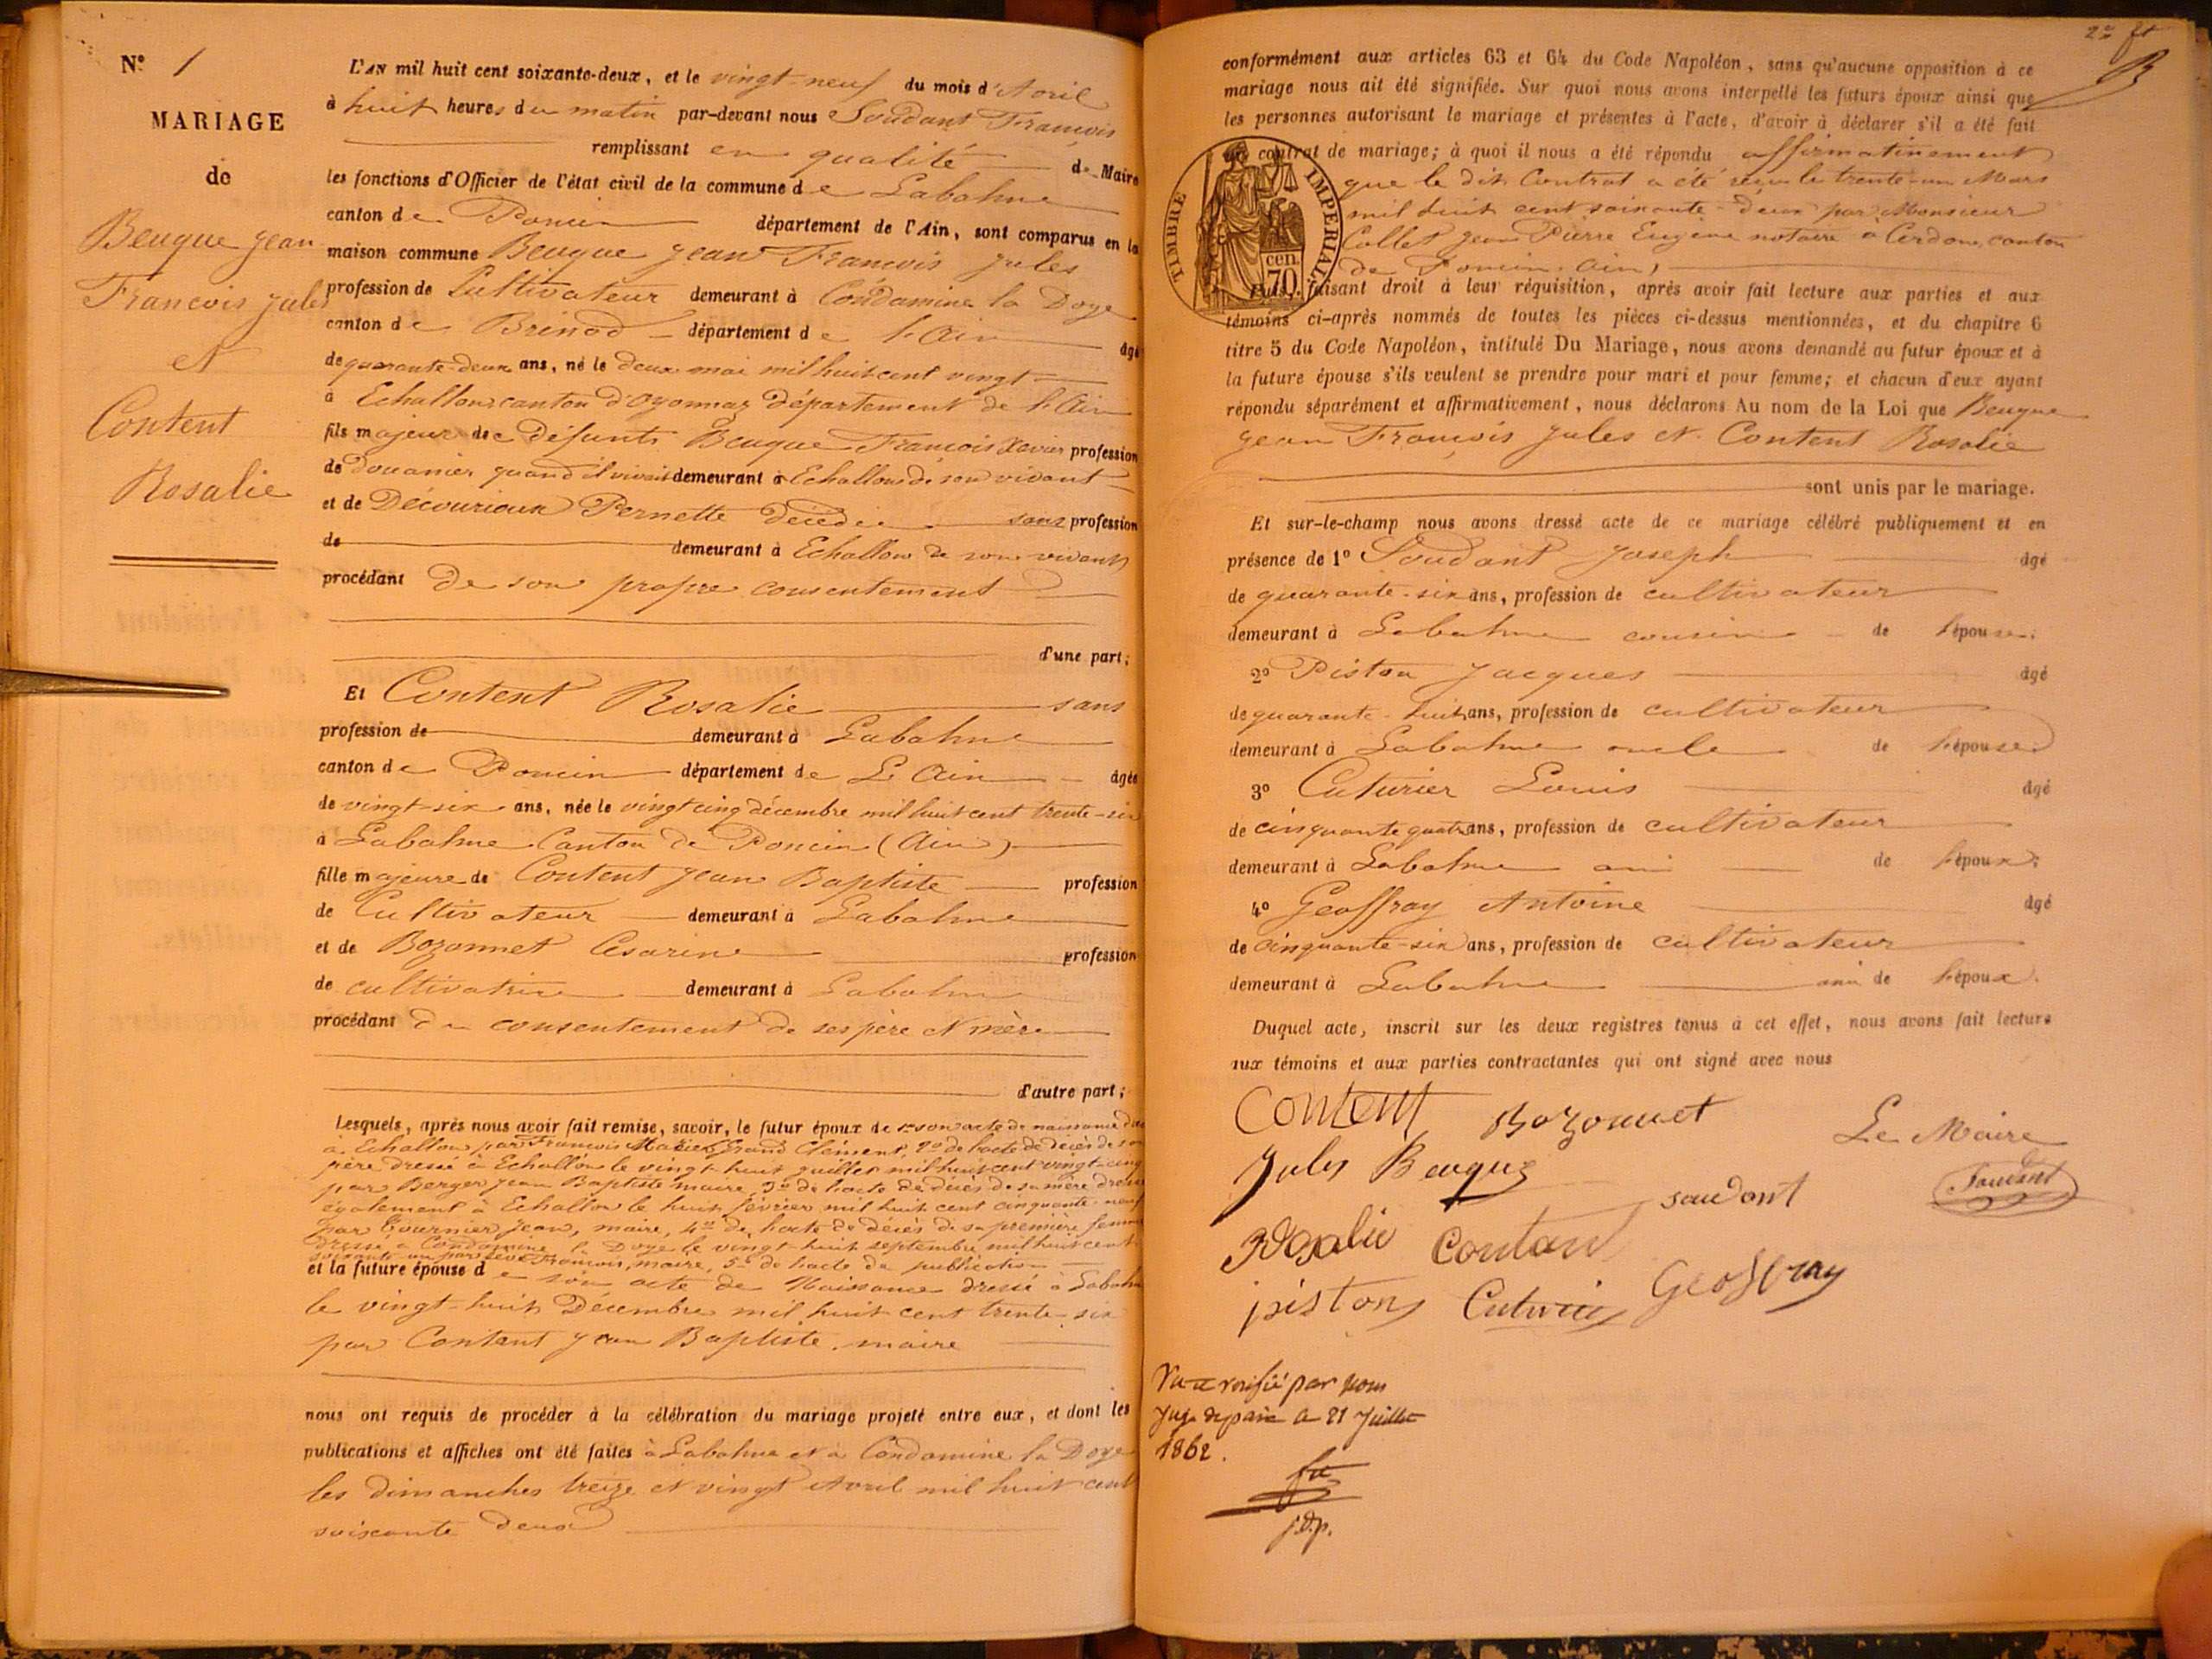 N° 1
MARIAGE
de
Beuque Jean
François Jules
et
Content
Rosalie
L'AN mil huit cent soixante-deux, et le vingt-neuf du mois d'Avril
à huit heures du matin par-devant nous Soudant François
remplissant en qualité de Maire
les fonctions d'Officier de l'état civil de la commune de Labalme
canton de Poncin département de l'Ain, sont comparus en la
maison commune Beuque Jean François Jules
profession de Cultivateur demeurant à Condamine la Doye
canton de Brénod département de l'Ain âgé
de quarante-deux ans, né le deux mai mil huit cent vingt
à Echallon canton d'Oyonnax département de l'Ain
fils majeur de défunts Beuque François Xavier profession
de douanier quand il vivait demeurant à Echallon de son vivant
et de Décourioux Pernette décédée sans profession
de demeurant à Echallon de son vivant
procédant de son propre consentement
d'une part;
Et Content Rosalie sans
profession de demeurant à Labalme
canton de Poncin département de L'Ain âgée
de vingt-six ans, née le vingt cinq décembre mil huit cent trente-six
à Labalme Canton de Poncin (Ain)
fille majeure de Content Jean Baptiste profession
de Cultivateur demeurant à Labalme
et de Bozonnet Césarine profession
de cultivatrice demeurant à Labalme
procédant du consentement de ses père et mère
d'autre part;
Lesquels, après nous avoir fait remise, savoir, le futur époux de son acte de naissance
à Echallon par François Grand Clément, 2° de l'acte de décès de son
père dressé à Echallon le vingt huit juillet mil huit cent vingt-cinq
par Berger Jean Baptiste maire, 3° de l'acte de décès de sa mère
également à Echallon le huit février mil huit cent cinquante-neuf
par Tournier Jean, maire, 4° de l'acte de décès de sa première femme
dressé à Condamine la Doye le vingt-huit septembre mil huit cent
soixante-un par François, maire, 5° de l'acte de publication
et la future épouse de son acte de Naissance dressé à Labalme
le vingt-huit Décembre mil huit cent trente-six
par Content Jean Baptiste, maire
nous ont requis de procéder à la célébration du mariage projeté entre eux, et dont les
publications et affiches ont été faites à Labalme et à Condamine la Doye
les dimanches treize et vingt Avril mil huit cent
soixante deux
2e ft
conformément aux articles 63 et 64 du Code Napoléon, sans qu'aucune opposition à ce
mariage nous ait été signifiée. Sur quoi nous avons interpellé les futurs époux ainsi que
les personnes autorisant le mariage et présentes à l'acte, d'avoir à déclarer s'il a été fait
un contrat de mariage; à quoi il nous a été répondu affirmativement
que le dit Contrat a été reçu le trente-un Mars
mil huit cent soixante-deux par Monsieur
Collet Jean Pierre Eugène notaire à Cerdon, canton
de Poncin. Ain,
TIMBRE IMPERIAL
cen.
70
Puis, faisant droit à leur réquisition, après avoir fait lecture aux parties et aux
témoins ci-après nommés de toutes les pièces ci-dessus mentionnées, et du chapitre 6
titre 5 du Code Napoléon, intitulé Du Mariage, nous avons demandé au futur époux et à
la future épouse s'ils veulent se prendre pour mari et pour femme; et chacun d'eux ayant
répondu séparément et affirmativement, nous déclarons Au nom de la Loi que Beuque
Jean François Jules et Content Rosalie
sont unis par le mariage.
Et sur-le-champ nous avons dressé acte de ce mariage célébré publiquement et en
présence de 1° Soudant Joseph âgé
de quarante-six ans, profession de cultivateur
demeurant à Labalme cousin de l'épouse;
2° Piston Jacques âgé
de quarante-huit ans, profession de cultivateur
demeurant à Labalme oncle de l'épouse
3° Cuturier Louis âgé
de cinquante quatre ans, profession de cultivateur
demeurant à Labalme ami de l'époux;
4° Geoffray Antoine âgé
de cinquante-six ans, profession de cultivateur
demeurant à Labalme ami de l'époux.
Duquel acte, inscrit sur les deux registres tenus à cet effet, nous avons fait lecture
aux témoins et aux parties contractantes qui ont signé avec nous
Content Bozonnet Le Maire
Jules Beuque soudant Soudant
Rosalie Contant
piston Cuturier Geoffray
Vu et vérifié par nous
Juge de paix le 21 Juillet
1862.
j.d.p.